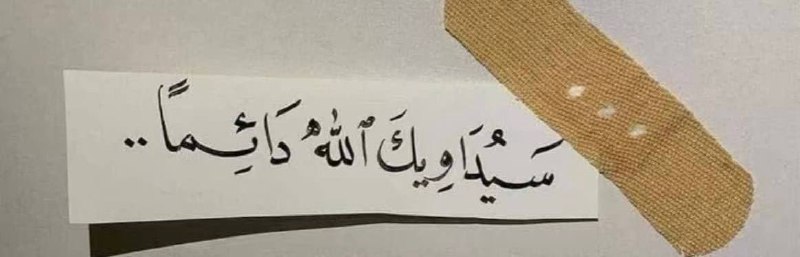 سَيُدَاوِيكَ ٱللهُ دَائِـمـاً ..